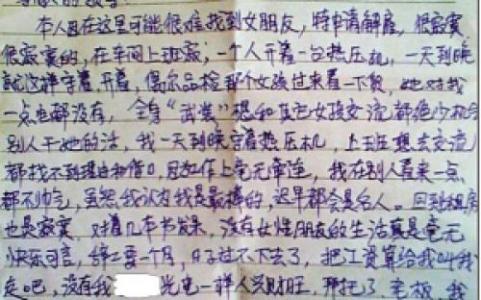 尊敬的领导:
本人因在这里可能很难找到女朋友,特申请解雇,很寂寞
很寂寞的,在车间上班寂,一个人开着一台热压机,一天到晚
就这样守着,开着,偶尔品检那个女孩过来看一下货,她对我
一点电都没有,全身“武装”想和其它女孩交流都绝少机会
别人干她的活,我一天到晚守着热压机,上班想去交流
都找不到理由和借口,因工作上毫无牵连,我在别人看来一点
都不帅气,虽然我认为我是最棒的,迟早都会是名人。回到租房
也是寂寞,对着几本书发呆,没有女性朋友的生活真是毫无
快乐可言,辞工要一个月,日子过不下去了,把工资算给我叫我
走吧,没有我 光电一样人兴财旺,开把了,老板,我